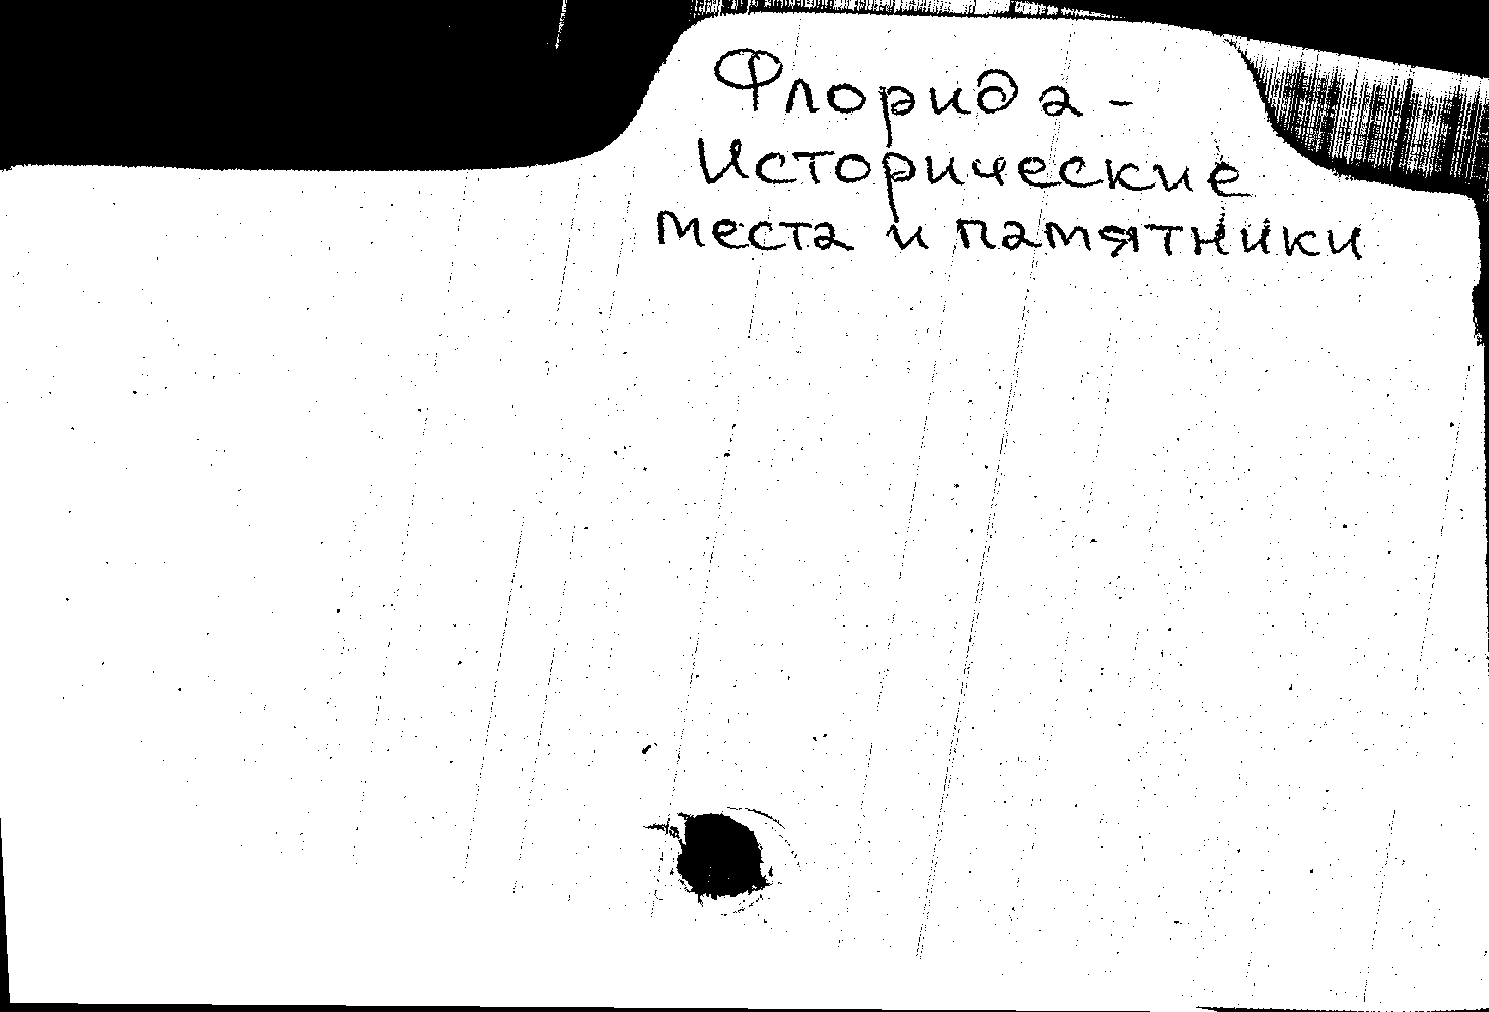 Флорида -
Исторические
места и памятники